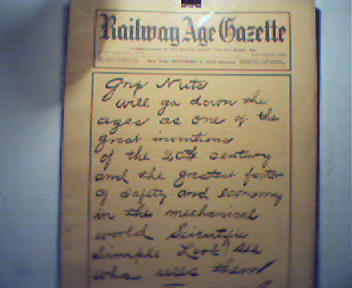 Railway Age Gazette
Grip Nuts
will go down the
ages as one of the
great inventions
of the 20th century
and the greatest factor
of safety and economy
in the mechanical
world Scientific
Simple Look see
who uses them